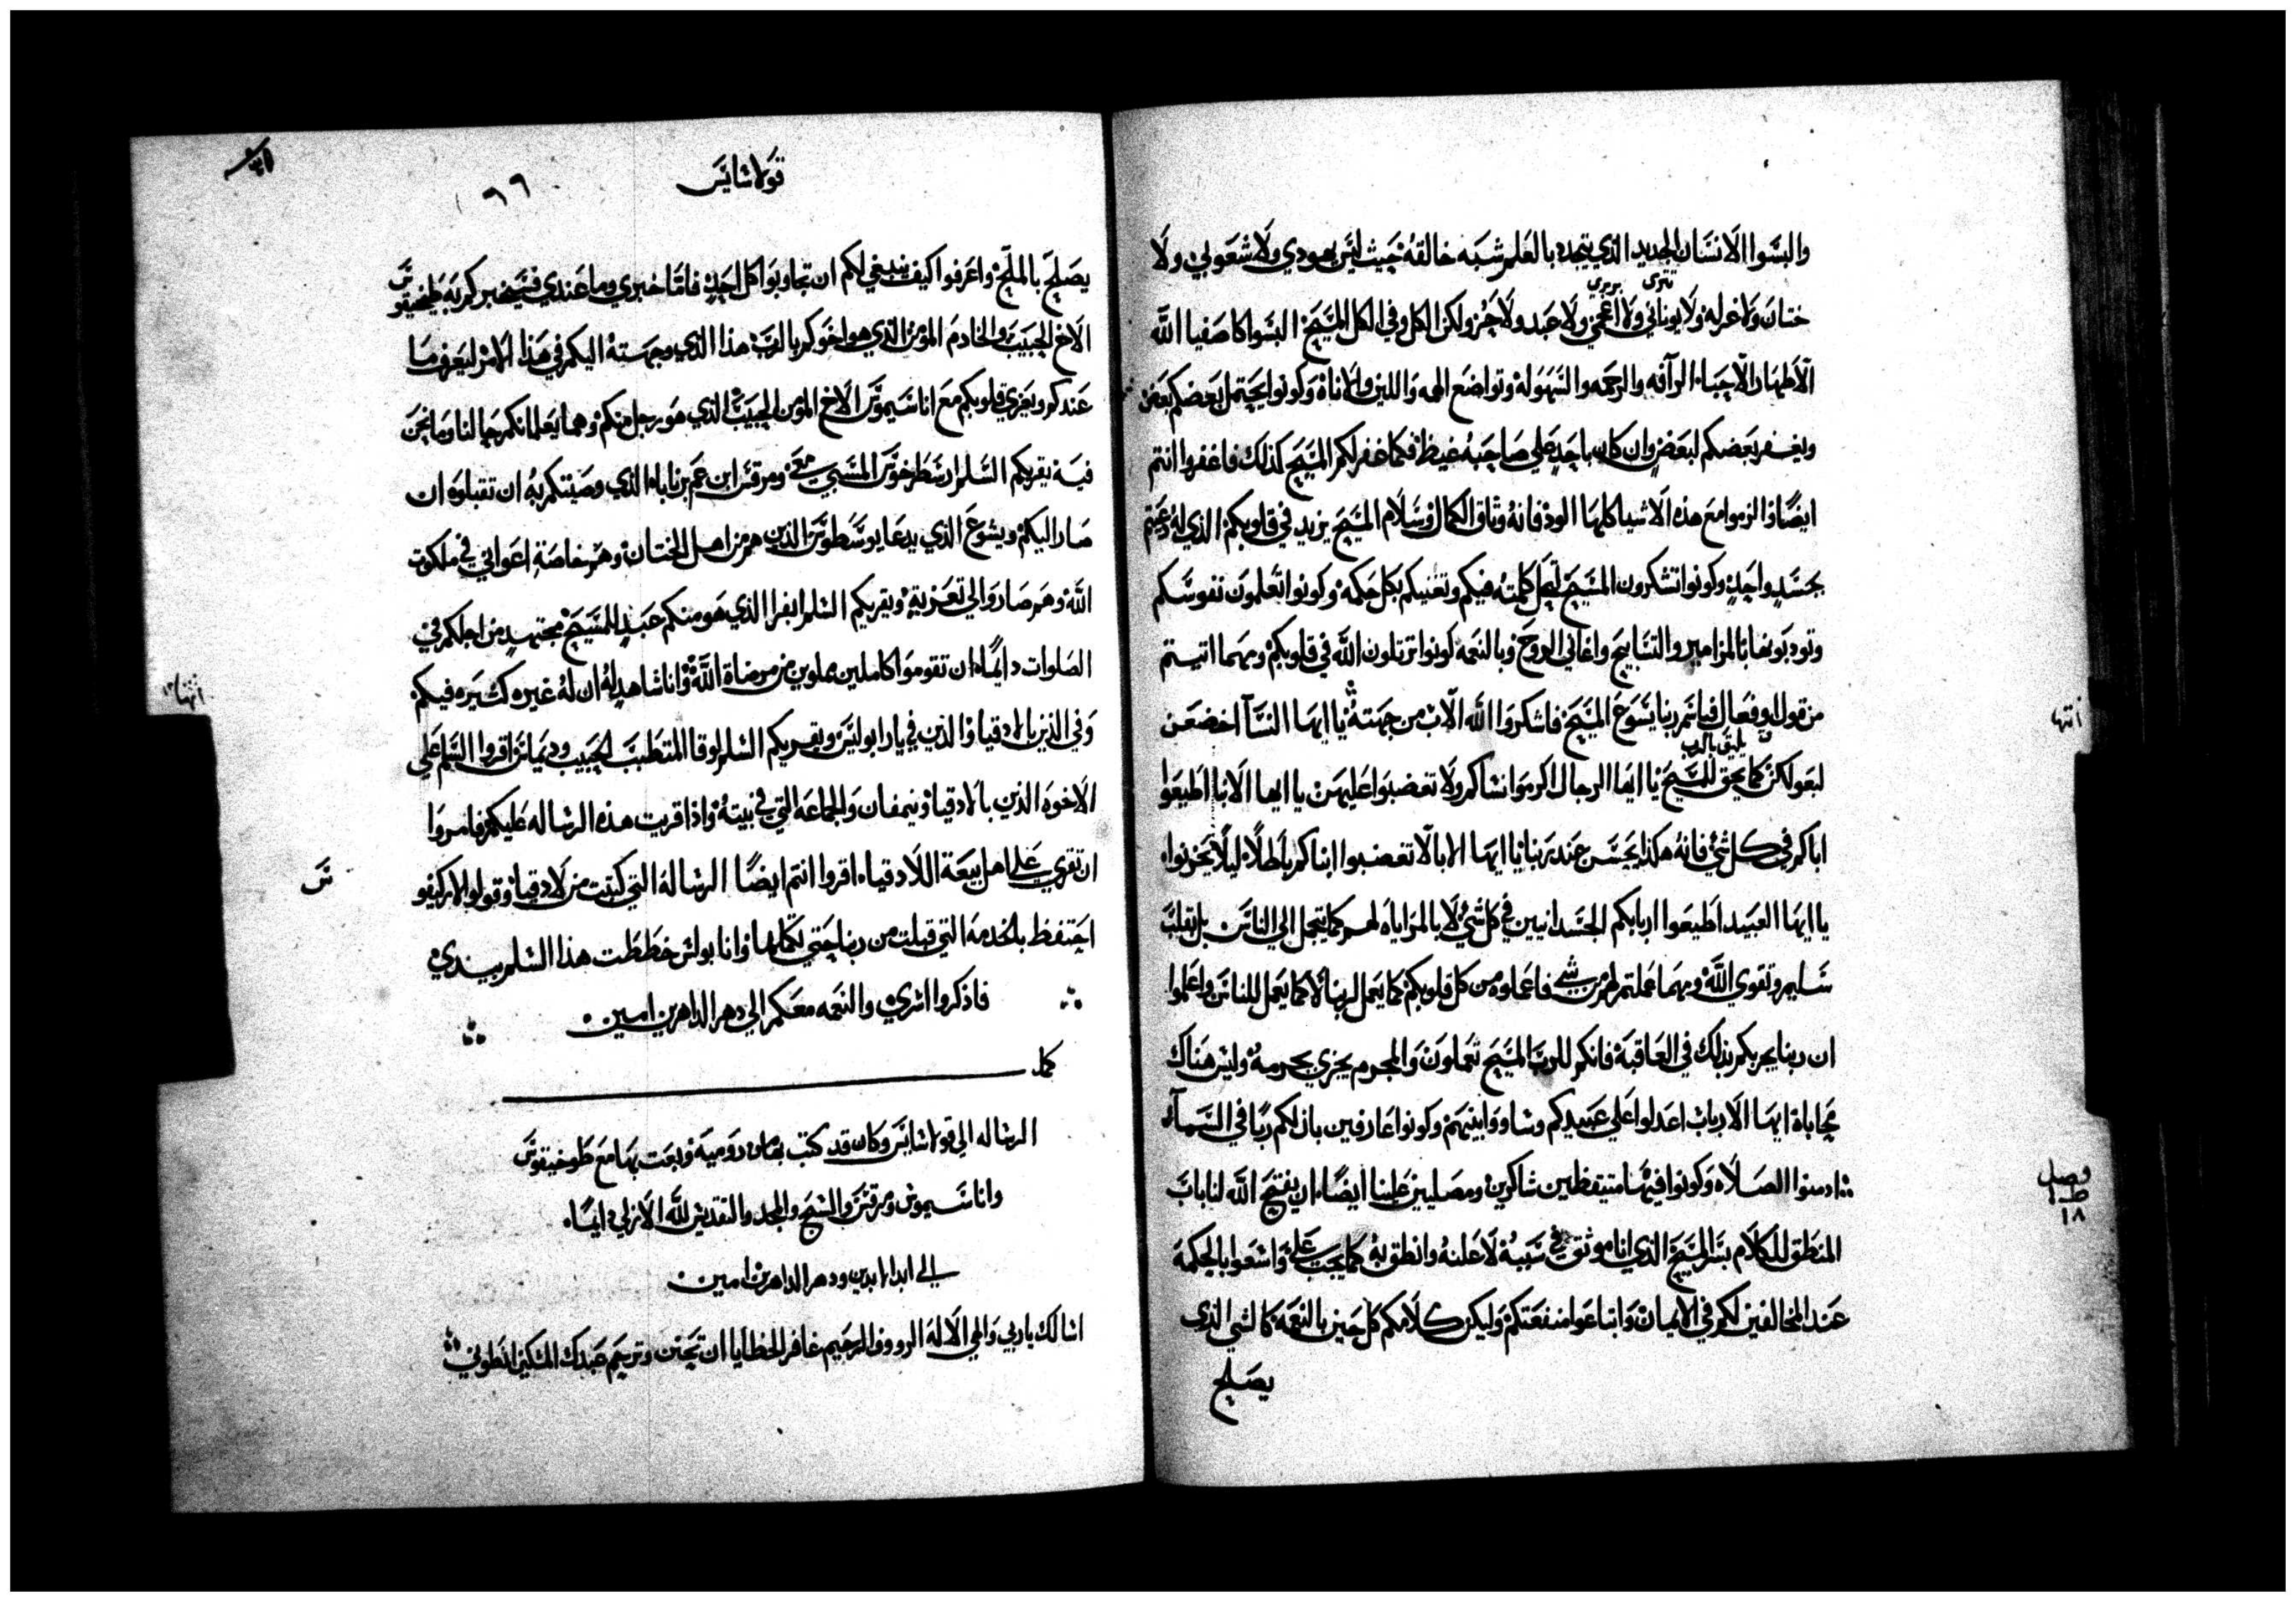 والبسوا الانسان الجديد الذي يتجدد بالعلم شبه خالقه حيث ليس يهودي ولا شعوبي ولا
تترى بربري
ختان ولا غرله ولا يوناني ولا اعجمي ولا عبد ولا حر ولكن الكل وفي الكل المسيح البسوا كاصفيا الله
الاطهار الاحباء الرآفه والرحمه والسهوله وتواضع الهمه واللين والاناة وكونوا يحتمل بعضكم بعض
ويغفر بعضكم لبعض وان كان باحد علي صاحبه غيظ فكما غفر لكم المسيح كذلك فاغفروا انتم
ايضًا والزموا مع هذه الاشيا كلها الود فانه وثاق الكمال وسلام المسيح يزيد في قلوبكم الذي له دعيتم
بجسد واحد وكونوا تشكرون المسيح لتحل كلمته فيكم وتغنيكم بكل حكمه وكونوا تعلمون نفوسكم
وتودبونها بالمزامير والتسابيح واغاني الروح وبالنعمه كونوا ترتلون الله في قلوبكم ومهما اتيتم
من قول او فعال فباسم ربنا يسوع المسيح فاشكروا الله الاب من جهته يا ايها النسآ اخضعن
يليق بالرب
لبعولكن كما يحق للمسيح يا ايها الرجال اكرموا نساكم ولا تغضبوا عليهن يا ايها الابنا اطيعوا
اباكم في كل شي فانه هكذا يحسن عند ربنا يا ايها الابا لا تغضبوا ابناكم باطلًا ليلا يحزنوا
يا ايها العبيد اطيعوا اربابكم الجسدانيين في كل شي لا بالمراياه لهم كما يتجمل الي الناس بل بقلب
سليم وتقوي الله ومهما عملتم لهم من شي فاعملوه من كل قلوبكم كما يعمل لربنا لا كما يعمل للناس واعلموا
ان ربنا يجزيكم بذلك في العاقبة فانكم للرب المسيح تعملون والمجرم يجزي بجرمه وليس هناك
محاباة ايها الارباب اعدلوا علي عبيدكم وساووا بينهم وكونوا عارفين بان لكم ربًا في السمآء
ادمنوا الصلاه وكونوا فيها متيقظين شاكرين ومصليين علينا ايضًا ان يفتح الله لنا باب
المنطق للكلام بسر المسيح الذي انا موثق في سببه لاعلنه وانطق به كما يجب علي واسعوا بالحكمة
عند المخالفين لكم في الايمان وابتاعوا منفعتكم وليكن كلامكم كل حين بالنعمة كالشي الذي
يصلح
انتها
فصل
١٨
قولاسايس
٦٦
يصلح بالملح واعرفوا كيف ينبغي لكم ان تجاوبوا كل احد فاما خبري وما عندي فسيخبركم به طخيقوس
الاخ الحبيب والخادم المومن الذي هو اخوكم بالرب هذا الذي وجهته اليكم في هذا الامر ليعرف ما
عندكم ويعزي قلوبكم مع اناسيموس الاخ المومن الحبيب الذي هو رجل منكم وهما يعلمانكم حالنا وما نحن
فيه يقريكم السلم ارسطرخوس المسبي معي ومرقس ابن عم برناباه الذي وصيتكم به ان تقبلوه ان
صار اليكم ويشوع الذي يدعا يوسطوس الذين هم من اهل الختان وهم خاصة اعواني في ملكوت
الله وهم صاروا لي تعزية ويقريكم السلم ابفرا الذي هو منكم عبد للمسيح مجتهد من اجلكم في
الصلوات دايمًا ان تقوموا كاملين مملوين من مرضاة الله وانا شاهد له ان له غيره كثيره فيكم
وفي الذين بالادقيا والذين في يارابوليس ويقريكم السلم لوقا المتطبب الحبيب وديماس اقروا السلم علي
الاخوه الذين بالادقيا ونيمفان والجماعه التي في بيته واذا قريت هذه الرساله عليكم فامروا
ان تقري علي اهل بيعة اللادقيا اقروا انتم ايضًا الرساله التي كتبت من لادقيا وقولوا لاركيفو
س
احتفظ بالخدمه التي قبلت من ربنا حتي تكملها وانا بولس خططت هذا السلم بيدي
فاذكروا اسري والنعمه معكم الي دهر الداهرين امين
كمل
الرساله الي قولاسايس وكان قد كتب بها من رومية وبعت بها مع طوخيقوس
واناسيموس ومرقس والسبح والمجد والتقديس لله الازلي دايمًا
الي ابد الابدين ودهر الداهرين امين
اسالك ياربي والهي الاله الرووف الرحيم غافر الخطايا ان تحنن وترحم عبدك المسكين انطوني
انتها